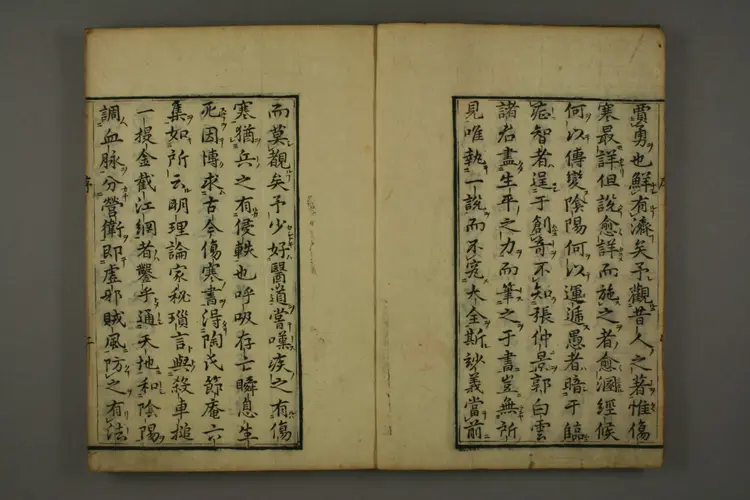 賈勇也鮮有濟矣予觀昔人之著惟傷
寒最詳但說愈詳而施之者愈溷經候
何以傳變陰陽何以運遞愚者暗于臨
症智者逞于創奇不知張仲景郭白雲
諸君盡生平之力而筆之于書豈無所
見唯執一說而不究大全斯玅義當前
而莫觀矣予少好醫道嘗嘆疾之有傷
寒猶兵之有侵軼也呼吸存亡瞬息生
死因博求古今傷寒書得陶氏節庵六
集如所云明理論家秘瑣言與殺車搥
一提金截江網者鑿乎通天地和陰陽
調血脉分營衛即虛邪賊風防之有法